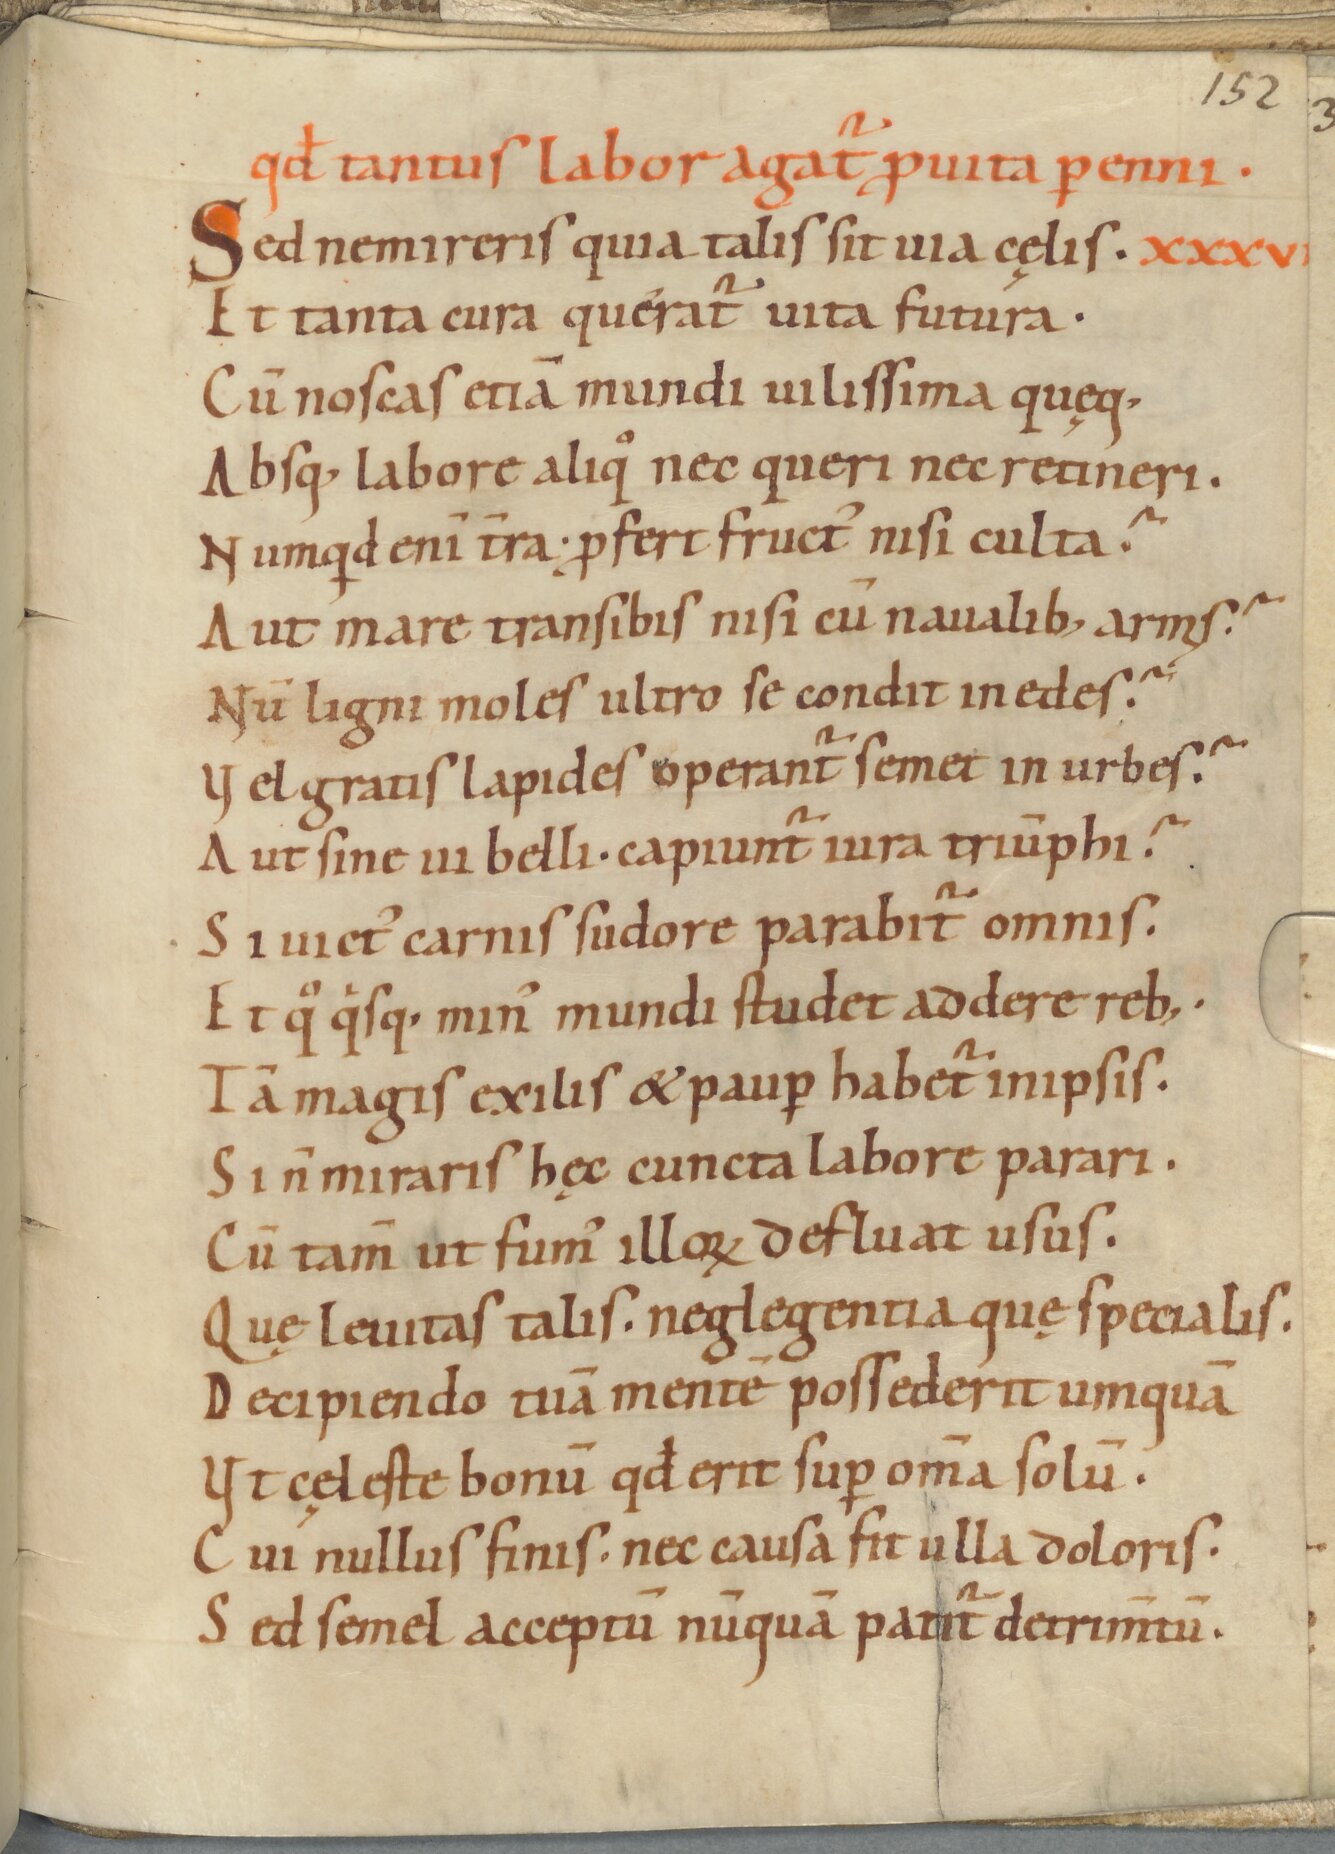 152
qđ tantus labor agat᷑ ꝓ uita ꝑenni.
Sed ne mireris quia talis sit uia cęlis. XXXVI
Et tanta cura querat᷑ uita futura.
Cū noscas etiā mundi uilissima quęq,
Absq, labore aliqͦ nec queri nec retineri.
Numqd enī t̄ra. ꝓfert fruct᾽ nisi culta?
Aut mare transibis nisi cū naualib, armis?
Nū ligni moles ultro se condit in edes?
Vel gratis lapides operant᷑ semet in urbes?
Aut sine ui belli. capiunt᷑ iura triūphi?
Si uict᾽ carnis sudore parabit᷑ omnis.
Et qͦ qͥsq, min᾽ mundi studet addere reb,.
Tā magis exilis & pauꝑ habet᷑ in ipsis.
Si n̄ miraris hęc cuncta labore parari.
Cū tam̄ ut fum᾽ illoꝝ defluat usus.
Quę leuitas talis. neglegentia quę specialis.
Decipiendo tuā mentē possederit umquā
Vt cęleste bonū qđ erit suꝑ om̄a solū.
Cui nullus finis. nec causa fit ulla doloris.
Sed semel acceptū nūquā patit᷑ detrim̄tū.